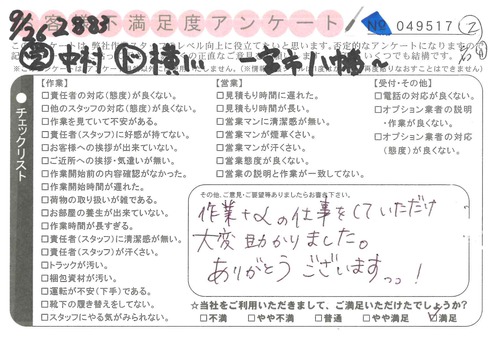 お客様不満足度アンケート No 049517 ②
9/26 2883
このアンケートは、弊社のサービスレベル向上に役立てたいと思います。否定的なアンケートになりますの
中村 ド 横山 一宮市八幡
チェックリスト
【作業】
□責任者の対応(態度)が良くない。
□他のスタッフの対応(態度)が良くない。
□作業を見ていて不安がある。
□責任者(スタッフ)に好感が持てない。
□お客様への挨拶が出来ていない。
□ご近所への挨拶・気遣いが無い。
□作業開始前の内容確認がなかった。
□作業開始時間が遅れた。
□荷物の取り扱いが雑である。
□お部屋の養生が出来ていない。
□作業時間が長すぎる。
□責任者(スタッフ)に清潔感が無い。
□責任者(スタッフ)が汗くさい。
□トラックが汚い。
□梱包資材が汚い。
□運転が不安(下手)である。
□靴下の履き替えをしてない。
□スタッフにやる気がみられない。
【営業】
□見積もり時間に遅れた。
□見積もり時間が長い。
□営業マンに清潔感が無い。
□営業マンが煙草くさい。
□営業マンが汗くさい。
□営業態度が良くない。
□営業の説明と作業が一致してない。
【受付・その他】
□電話の対応が良くない。
□オプション業者の説明
・作業が良くない。
□オプション業者の対応
(態度)が良くない。
その他、ご意見・ご要望等ありましたらお書き下さい。
作業+αの仕事をしていただけ
大変助かりました。
ありがとうございますっっ!
☆当社をご利用いただきまして、ご満足いただけたでしょうか?
□不満 □やや不満 □普通 □やや満足 ☑満足